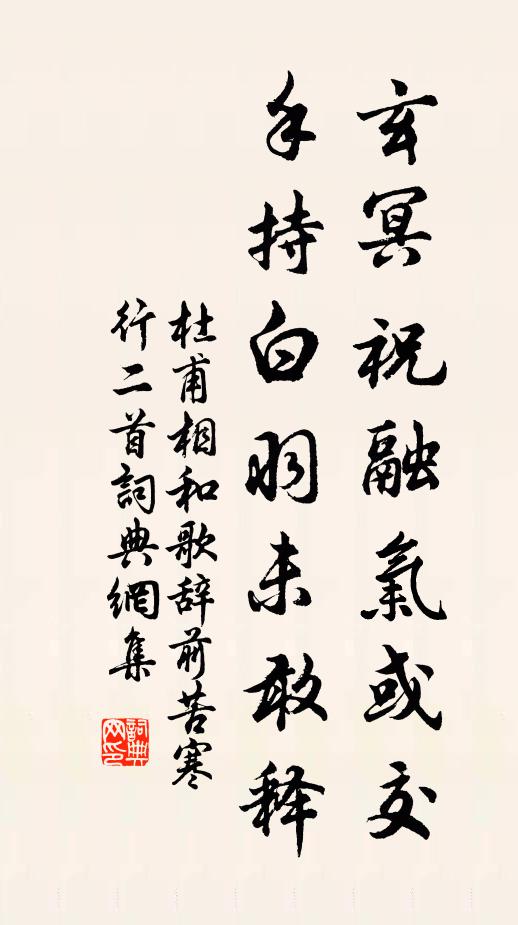 玄冥祝融氣或交
手持白羽未敢释
杜甫相和歌辞前苦寒
行二首詞典網集
詞典
网印